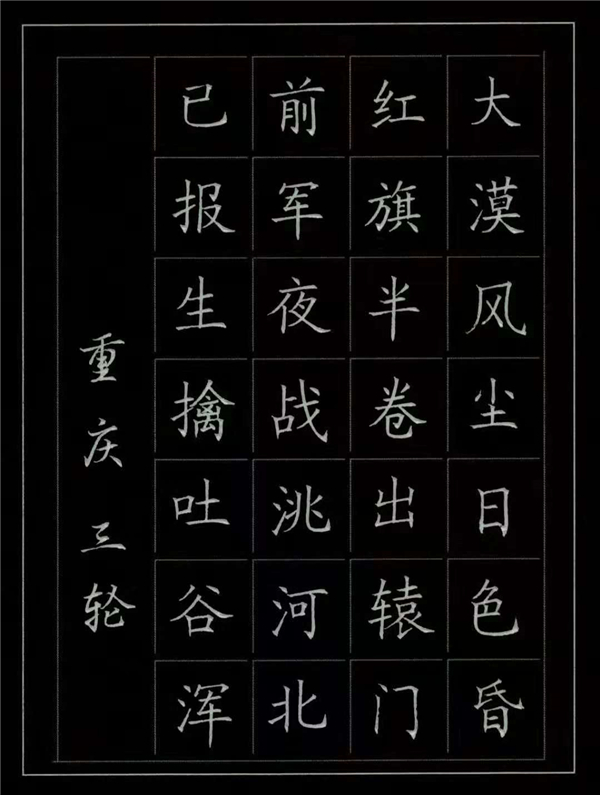 大漠风尘日色昏
红旗半卷出辕门
前军夜战洮河北
已报生擒吐谷浑
重庆三轮